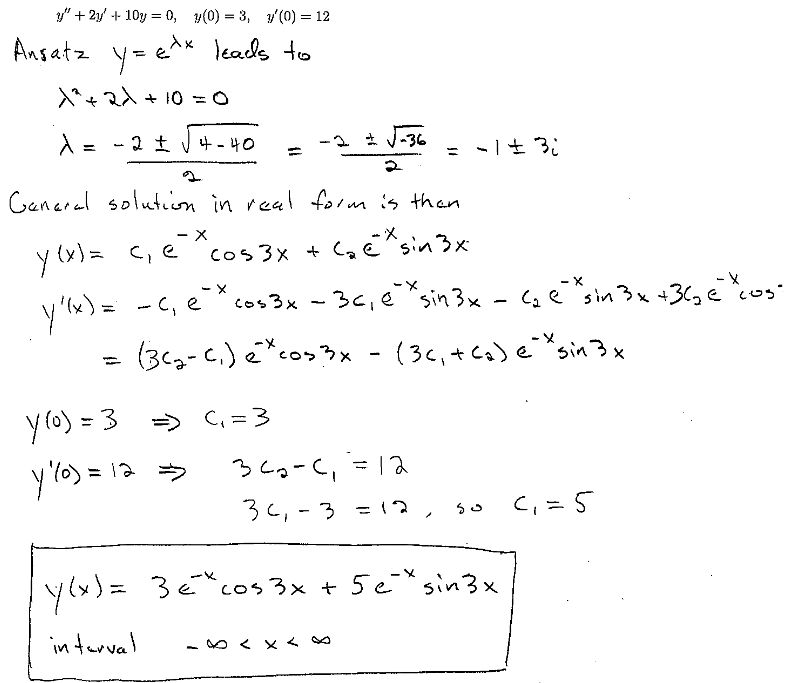 y″ + 2y′ + 10y = 0, y(0) = 3, y′(0) = 12
Ansatz y = e^{λx} leads to
λ² + 2λ + 10 = 0
λ = (-2 ± √(4-40))/2 = (-2 ± √(-36))/2 = -1 ± 3i
General solution in real form is then
y(x) = c₁e^{-x}cos3x + c₂e^{-x}sin3x
y'(x) = -c₁e^{-x}cos3x - 3c₁e^{-x}sin3x - c₂e^{-x}sin3x + 3c₂e^{-x}cos
= (3c₂-c₁)e^{-x}cos3x - (3c₁+c₂)e^{-x}sin3x
y(0) = 3 ⇒ c₁ = 3
y'(0) = 12 ⇒ 3c₂-c₁ = 12
3c₁ - 3 = 12, so c₁ = 5
y(x) = 3e^{-x}cos3x + 5e^{-x}sin3x
interval -∞ < x < ∞